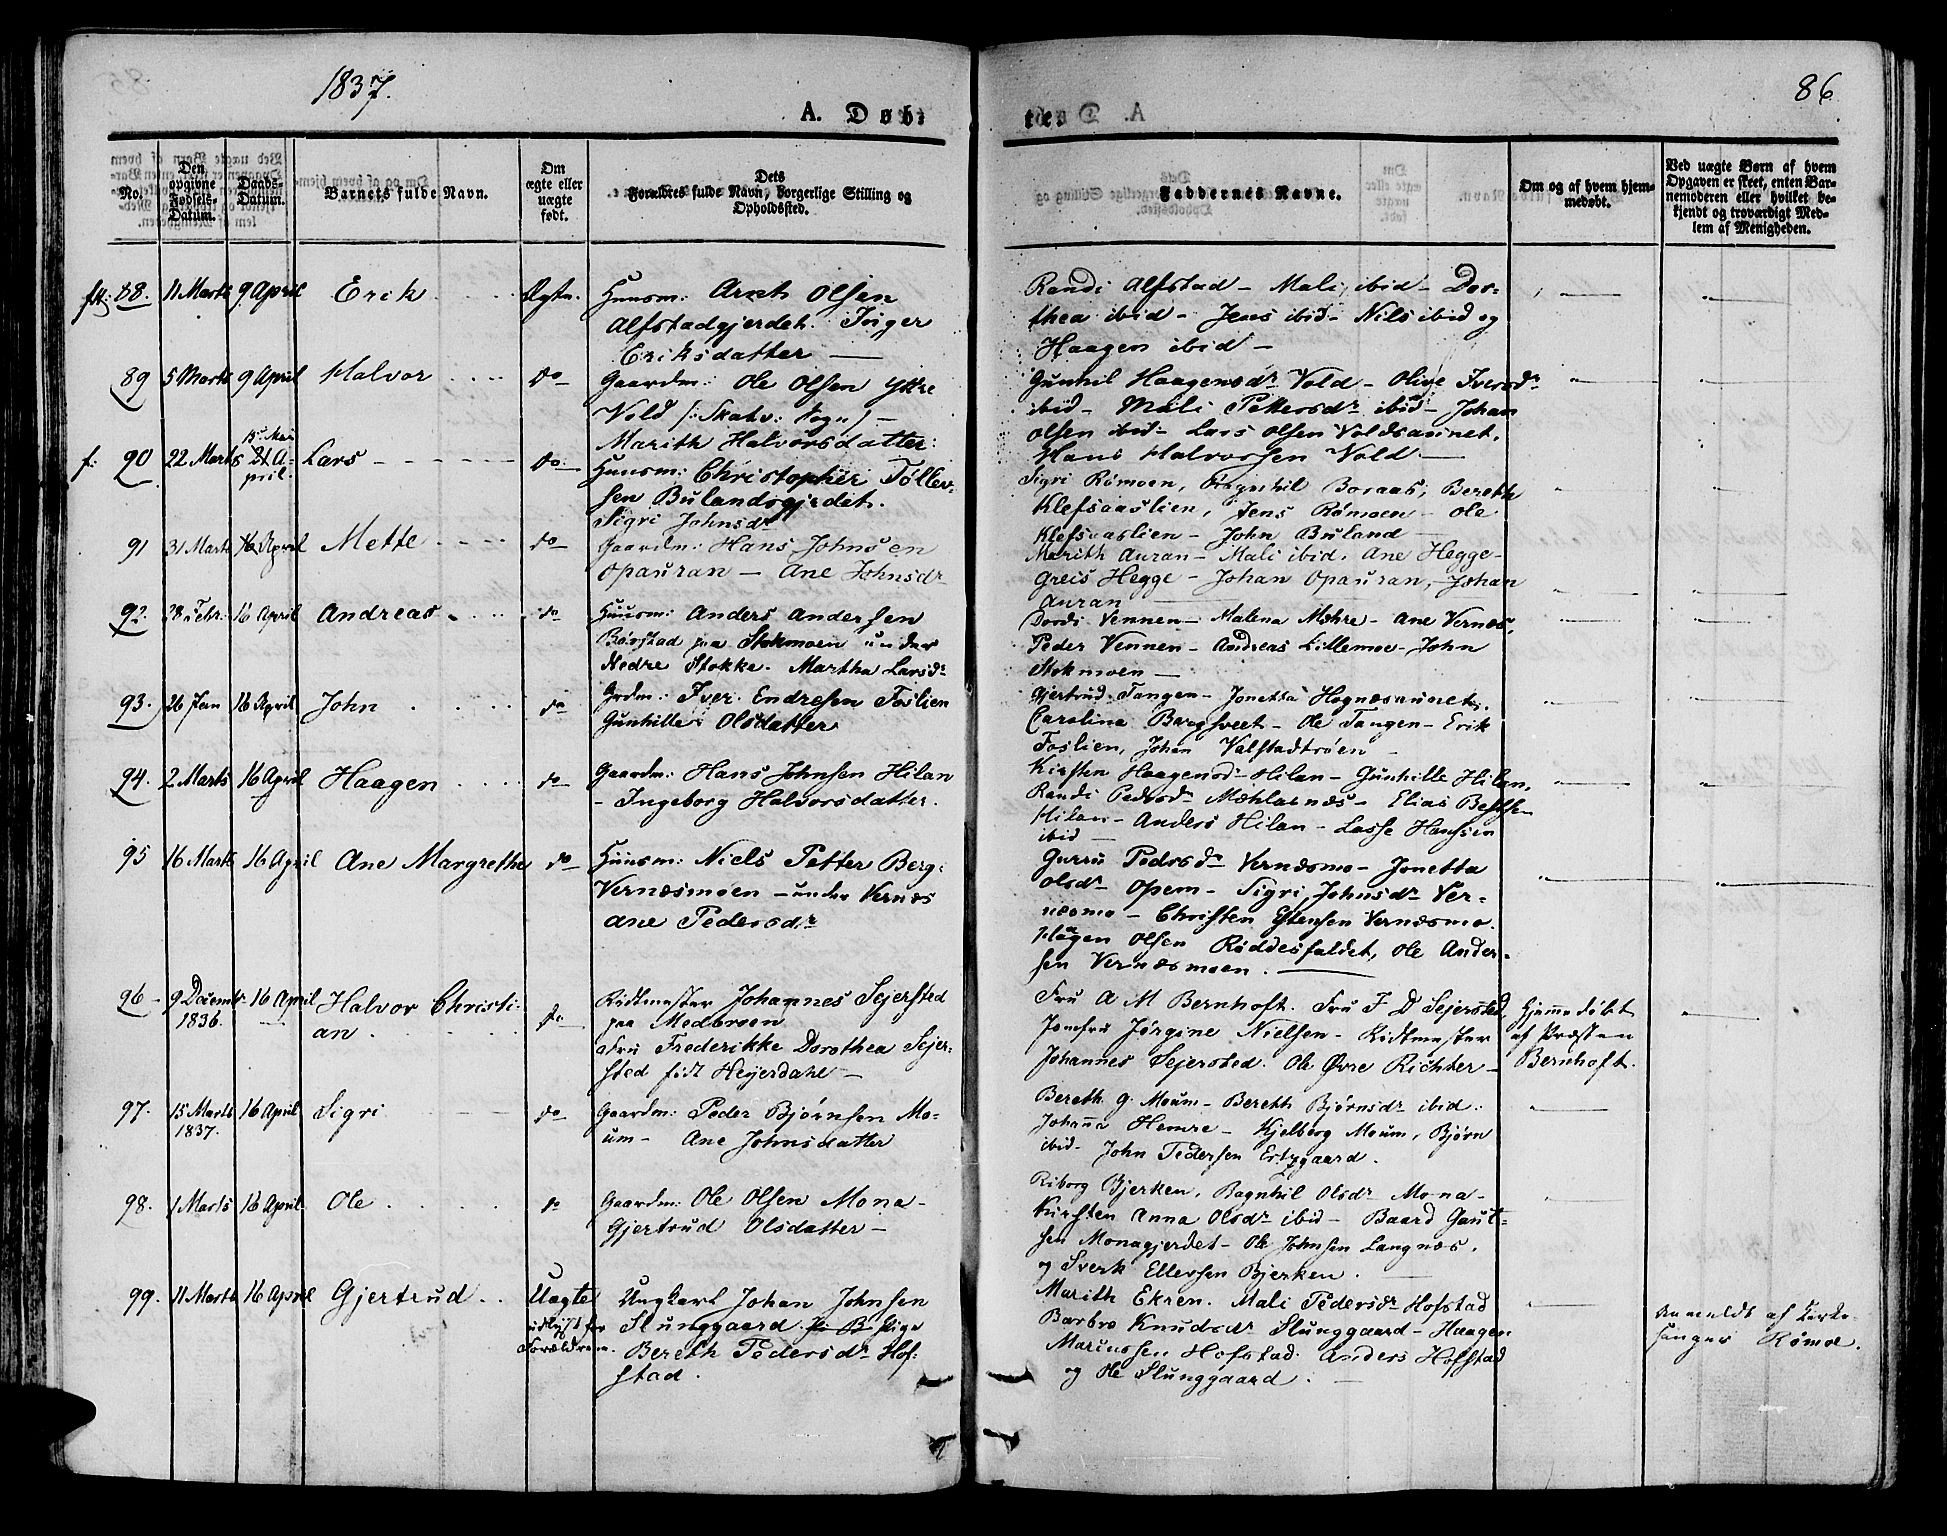 1837.
86
A. Døb-
te.
No.
Den opgivne Fødsels-Datum.
Daabs-Datum.
Barnets fulde Navn.
Om ægte eller uægte født.
Dets Forældres fulde Navn, borgerlige Stilling og Opholdssted.
Faddernes Navne.
Om og af hvem hjem-
medøbt.
Ved uægte Børn af hvem
Opgaven er skeet, enten Bar-
nemoderen eller hvilket be-
kjendt og troværdigt Med-
lem af Menigheden.
88. 11 Marts 9 April Erik Ægte. Huusm: Arnt Olsen
Alfstadgjerdet. Inger
Eriksdatter —
Randi Alfstad — Mali ibid — Dor-
thea ibid — Jens ibid — Nils ibid og
Haagen ibid —
89 5 Marts 9 April Halvor do Gaardm: Ole Olsen Ytre
Vold /: Skatv: Sogn / —
Marith Halvorsdatter:
Gunhil Haagensdr Vold — Olive Iversdr
ibid — Mali Pettersdr ibid — Johan
Olsen ibid — Lars Olsen Voldsaunet.
Hans Halvorsen Vold —
f: 90 22 Marts 15 Mai 21 A-
pril. Lars do Huusm: Christopher Tøllev-
sen Bulandsgjerdet.
Sigri Johnsdr
Sigri Rømoen, Ragnhil Boraas, Bereth
Klefsaaslien, Jens Rømoen — Ole
Klefsaaslien — John Buland —
91 31 Marts 16 April Mette do Gaardm: Hans Johnsen
Opauran — Ane Johnsdr
Marith Auran — Mali ibid. Ane Hegge —
Greis Hegge — Johan Opauran, Johan
Auran
92. 28 Febr: 16 April Andreas do Huusm: Anders Andersen
Børstad paa Stokmoen under
Nedre Stokke. Martha Larsdr
Dordi Vennen — Malena Mæhre — Ane Vernæs,
Peder Vennen — Andreas Lillemoe — John
Stokmoen —
93. 26 Jan 16 April John do Grdm: Iver Endresen Foslien
Gunhille Olsdatter
Gjertrud Tangen — Jonetta Hognæsaunet,
Carolina Bargsveet — Ole Tangen — Erik
Foslien, Johan Valstadtrøen —
94. 2 Marts 16 April Haagen do Gaardm: Hans Johnsen Hilan
— Ingeborg Halvorsdatter.
Kirsten Haagensd — Hilan — Gunhille Hilan,
Randi Pedrsdr Mæhlanæs — Elias
Hilan — Anders Hilan — Lasse Hansen
ibid —
95 16 Marts 16 April Ane Margrethe do Huusm: Niels Petter Berg:
Vernæsmoen — under Vernæs
Ane Pedersdr
Gurru Pedrsdr Vernæsmo — Jonetta
Olsdr Opem — Sigri Johnsdr Ver-
næsmo — Christen Estensen Vernæsmo.
Haagen Olsen Røddesfaldet, Ole Ander-
sen Vernæsmoen. —
96 — 9 Decembr 1836. 16 April Halvor Christi-
an. do Ridtmester Johannes Sejersted
paa Mederoen
Fru Frederikke Dorothea Sejer-
sted født Heyerdahl —
Fru A M Bernhoft. Fru F D Sejersted,
Jomfru Jørgine Nielsen — Ridtmester
Johannes Sejersted. Ole Øvre Richter —
Hjemmedøbt
af Præsten
Bernhoft.
97. 15 Marts 1837. 16 April Sigri do Gaardm: Peder Bjørnsen Mo-
um — Ane Johnsdatter
Bereth G. Moum — Bereth Bjørnsdr ibid.
Johanna Hemre — Kjelberg Moum, Bjørn
ibid — John Pedersen Ertzgaard.
98. 1 Marts 16 April Ole do Gaardm: Ole Olsen Mona —
Gjertrud Olsdatter —
Riborg Bjerken, Ragnhil Olsdr Mona —
Kirsten Anna Olsdr ibid — Baard Gaut-
sen Monagjerdet — Ole Johnsen Langnæs,
og Sverk Ellevsen Bjerken. —
99. 11 Marts 16 April Gjertrud Uægte
udlagt for
Forældrene. Ungkarl Johan Johnsen
Slunggaard. Pige
Bereth Pedersdr Hof-
stad.
Marith Ekren. Mali Pedersdr Hofstad
Barbro Knudsdr Slunggaard — Haagen
Mariussen Hofstad. Anders Hofstad
og Ole Slunggaard. —
Anmeldt af Kirke-
sanger Rømoe.